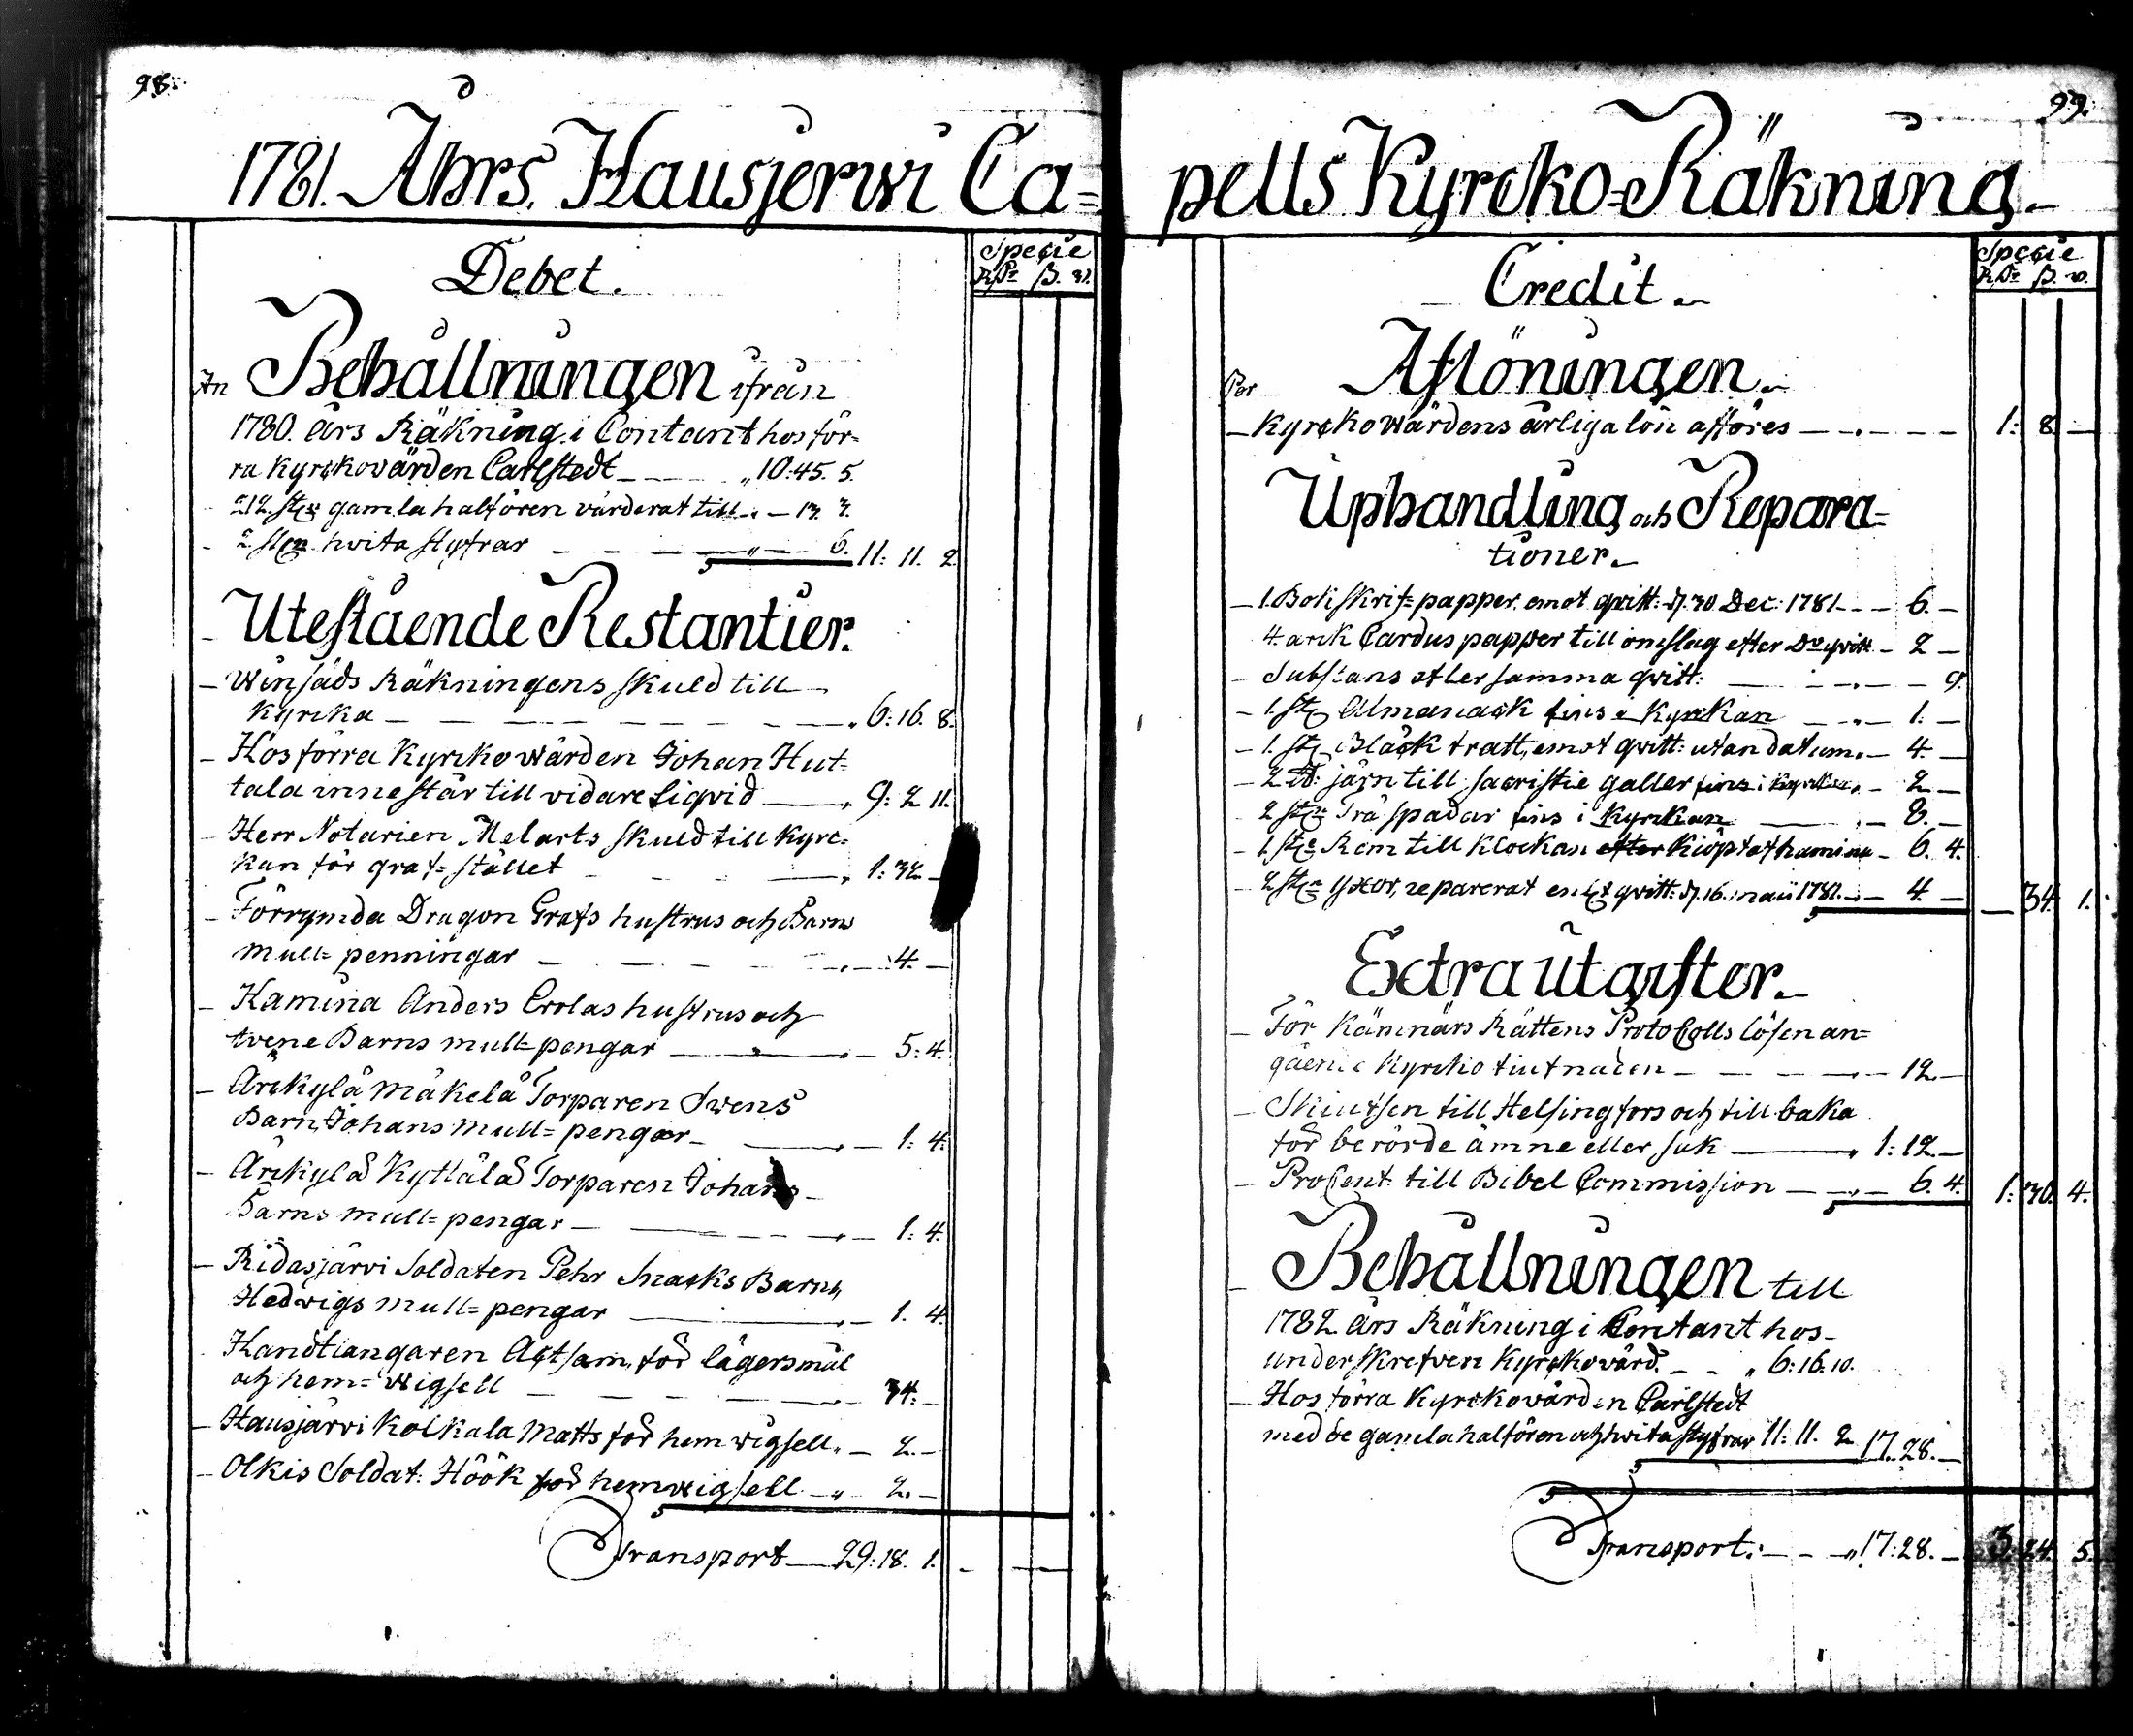 98.
1781. Åhrs. Hausjerwi Ca=
Debet.
Specie
R.dr ß. rs.
An Behållningen ifrån
1780. års Räkning i Contant hos för=
ra Kyrckovärden Carlstedt „ 10. 45. 5.
212. st. gamla halfören värderat till 13. 3.
2 st. hvita styfrar „ 6. 11: 11. 2.
Utestående Restantier.
Winsäds Räkningens skuld till
Kyrcka „ 6: 16. 8.
Hos förra Kyrckowärden Johan Hut=
tala innestår till vidare Liqvid „ 9: 2 11.
Herr Notarien Melarts skuld till Kyrc=
kan för graf=stället „ 1: 32.
Förrymda Dragon Grefs hustrus och Barns
mull=penningar „ 4.
Kamina Anders Erolas hustrus och
tvene Barns mull=pengar „ 5: 4.
Arckylä Mäkelä Torparen Swens
Barn Johans mull=pengar 1: 4.
Arckylä Kyttälä Torparen Johans
Barns mull=pengar 1: 4.
Ridasjärvi Soldaten Pehr Snacks Barns
Hedvigs mull=pengar 1. 4.
Handtlangaren Actsam, för lägersmål
och hem=wigsell 34.
Hausjärvi Kolkala Matts för hemwigsell „ 2.
Olkis Soldat: Höök för hemwigsell „ 2.
Transport 29: 18. 1.
99.
pells Kyrcko=Räkning.
Credit.
Specie
R.dr ß. rs.
Per Aflöningen.
Kyrckowärdens årliga lön afföres 1: 8.
Uphandling och Repara=
tioner.
1. Bok skrif=papper emot qvitt: d. 30 Dec: 1781 6.
4. arck Carduspapper till omslag efter Do qvitt 2
Substans efter samma qvitt: 9.
1. st. Almanack fins i Kyrckan 1.
1. st. Bläcktratt, emot qvitt: utan datum. 4.
2 ℔: järn till sacristie galler fins i Kyrckan. 2
2 st. Trä spadar fins i Kyrckan 8.
1. st. Rem till Klockan efter Kiöpt af hamina 6. 4.
2 st. yxor, reparerat enl.t qvitt: d. 16. maii 1781. 4. 34. 1.
Extra utgifter.
För Kämnärs Rättens Protocolls lösen an=
gående Kyrcko tiufnaden 12.
Skiutsen till Helsingfors och till baka
för berörde ämne eller sak 1: 12
ProCent till Bibel Commission 6. 4. 1: 30. 4.
Behållningen till
1782 års Räkning i Contant hos
underskrefven Kyrckovärd. „ 6: 16. 10.
Hos förra Kyrckovärden Carlstedt
med de gamla halfören och hvita styfrar 11: 11. 2 17. 28.
Transport: „ 17: 28. 3: 24. 5.